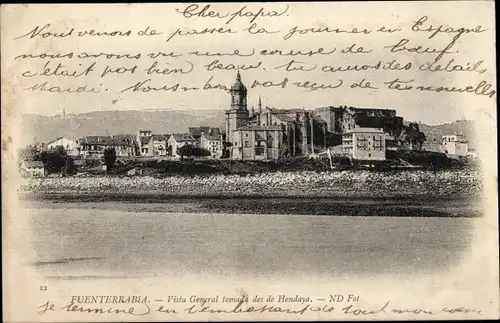 Cher papa.
Nous venons de passer la journée en Espagne
nous avons vu une course de bœuf.
c'était pas bien beau. Tu auras des détails
Mardi. Nous avons pas reçu de tes nouvelles
12 FUENTERRABIA. — Vista General tomada des de Hendaya. — ND Fot
Je termine en t'embrassant de tout mon cœur